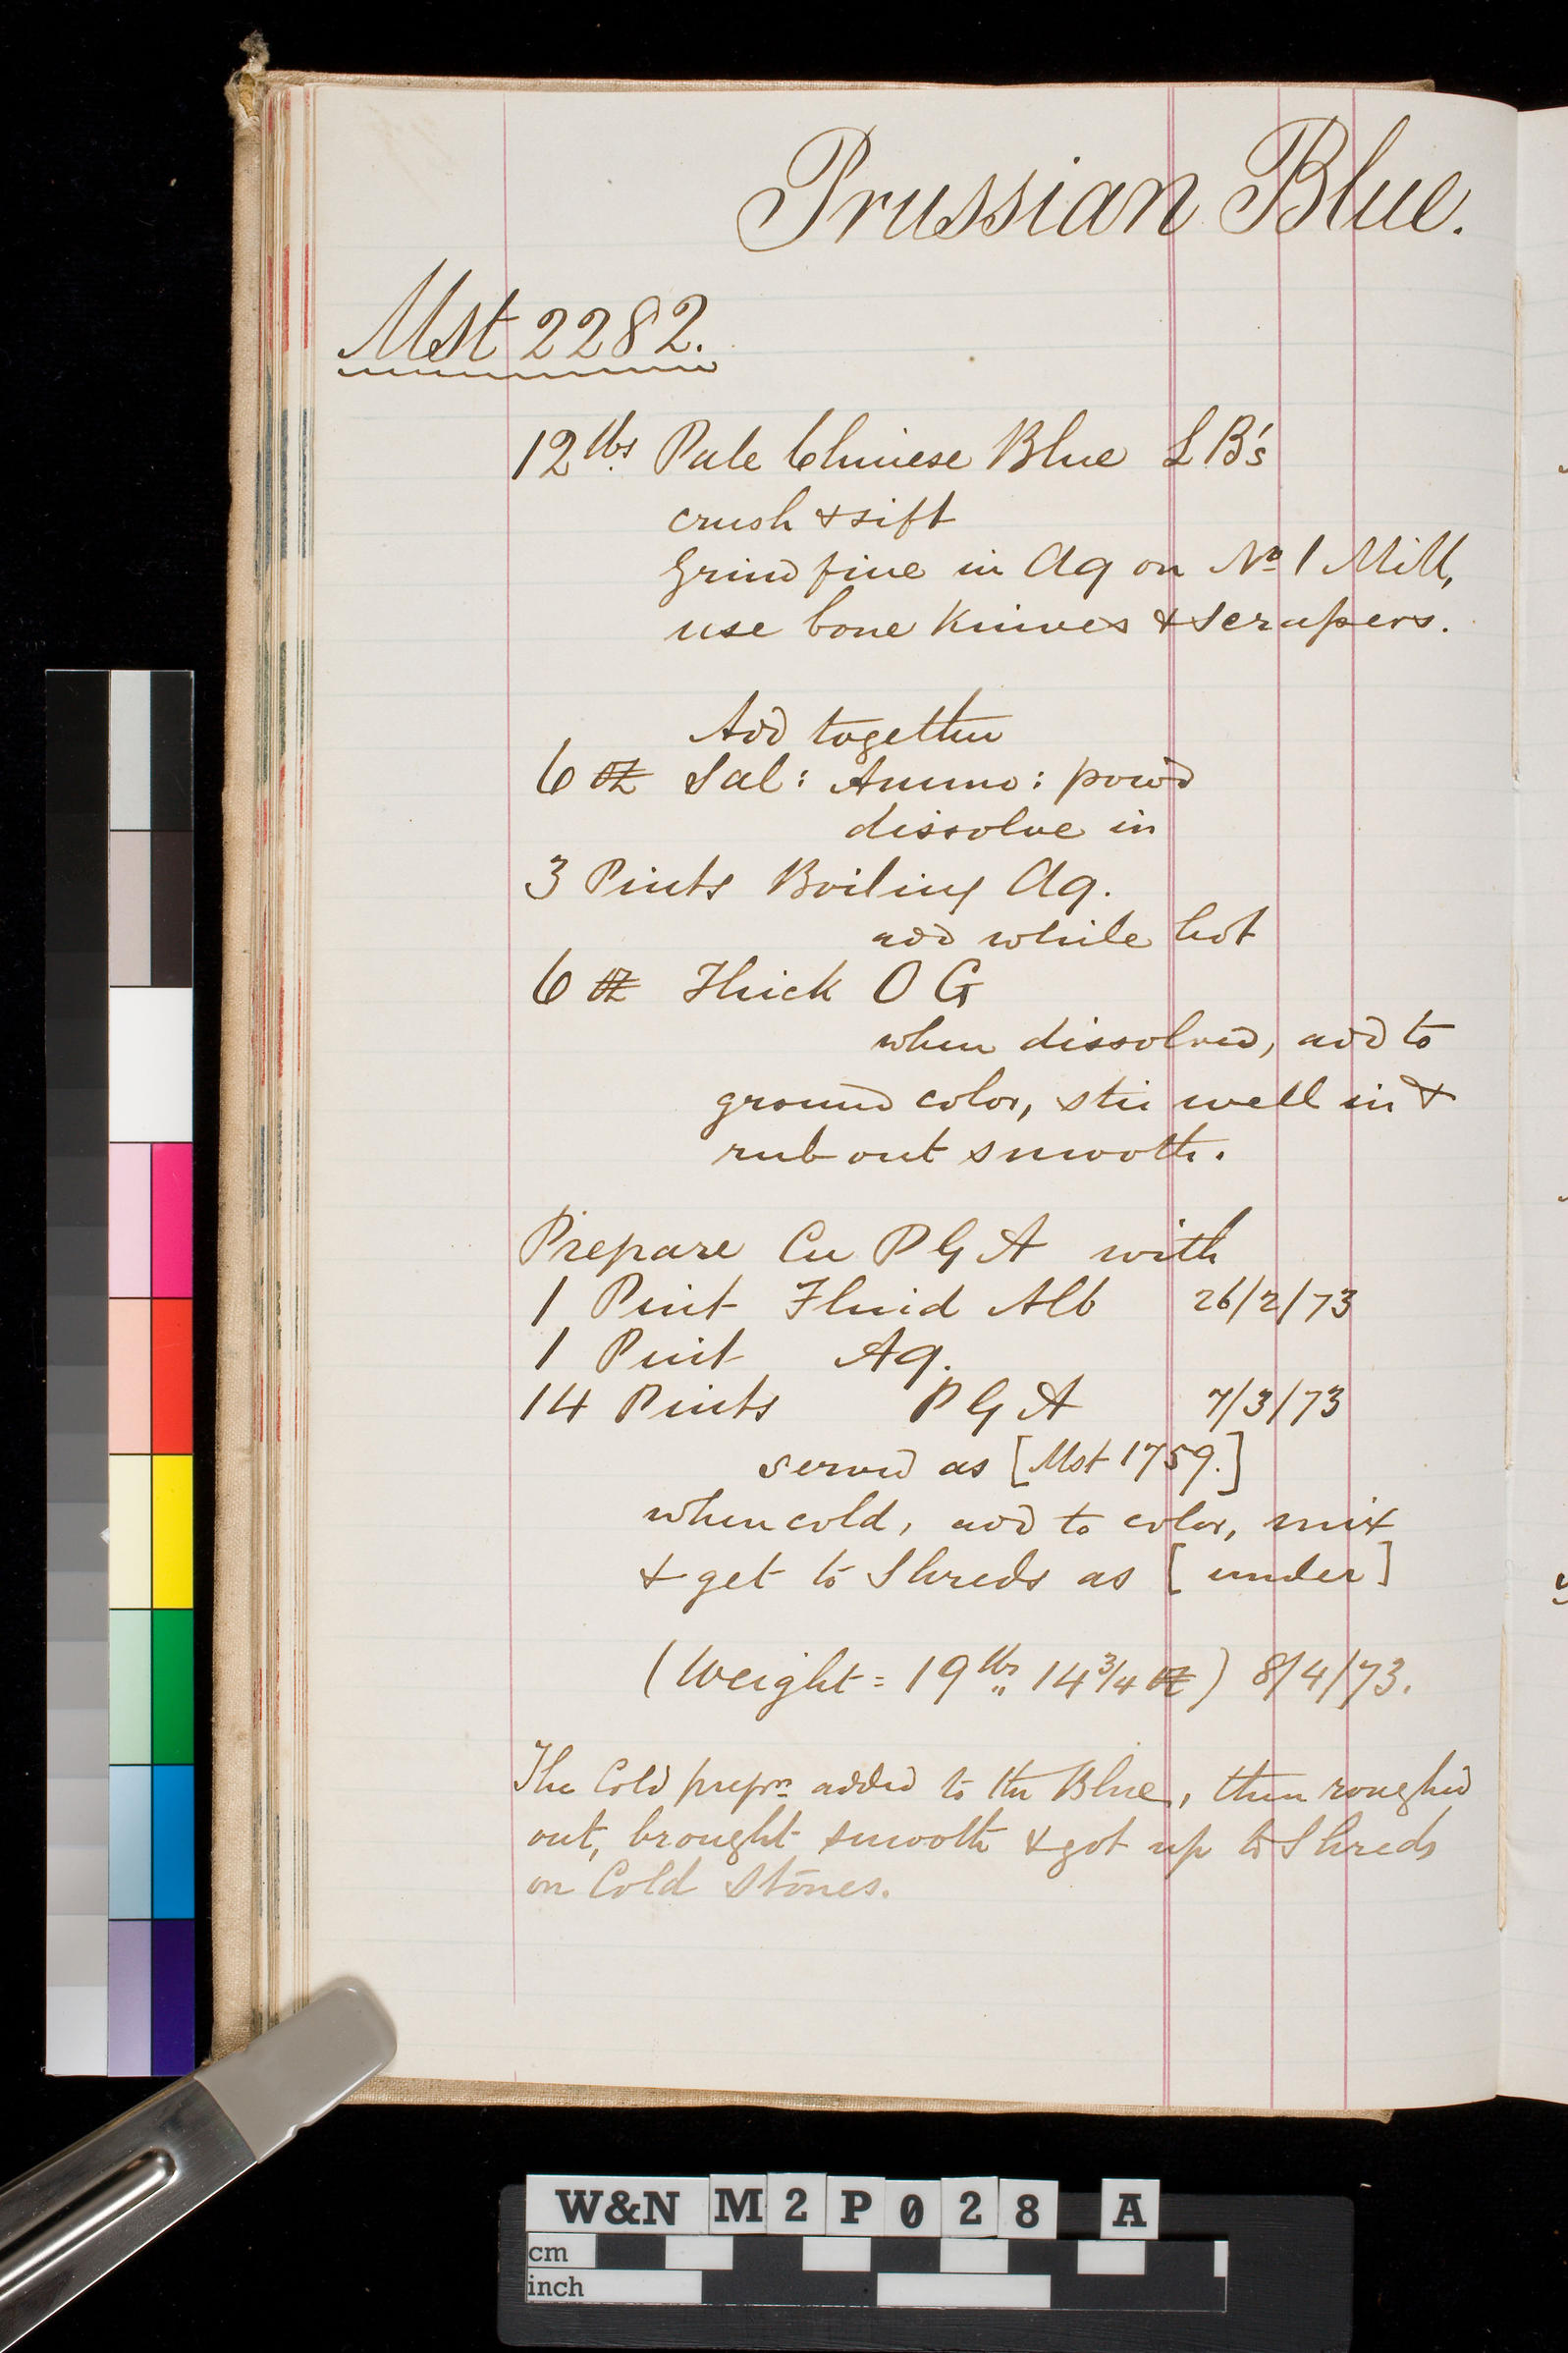 Prussian Blue.
Mst 2282.
12 lbs. Pale Chinese Blue L B's
crush & sift
Grind fine in Aq on No 1 Mill,
use bone Knives & Scrapers.
Add together
6 oz Sal: Ammo: powd
dissolve in
3 Pints Boiling Aq.
add while hot
6 oz Thick O G
when dissolved, add to
ground color, stir well in &
rub out smooth.
Prepare Cu P G A with
1 Pint Fluid Alb 26/2/73
1 Pint Aq.
14 Pints P G A 7/3/73
served as [Mst 1759.]
when cold, add to color, mix
& get to Shreds as [under]
(Weight = 19 lbs 14 3/4 oz) 8/4/73.
The Cold prepn added to the Blue, then roughed
out, brought smooth & got up to Shreds
on Cold Stones.
W&N M2P028 A
cm
inch